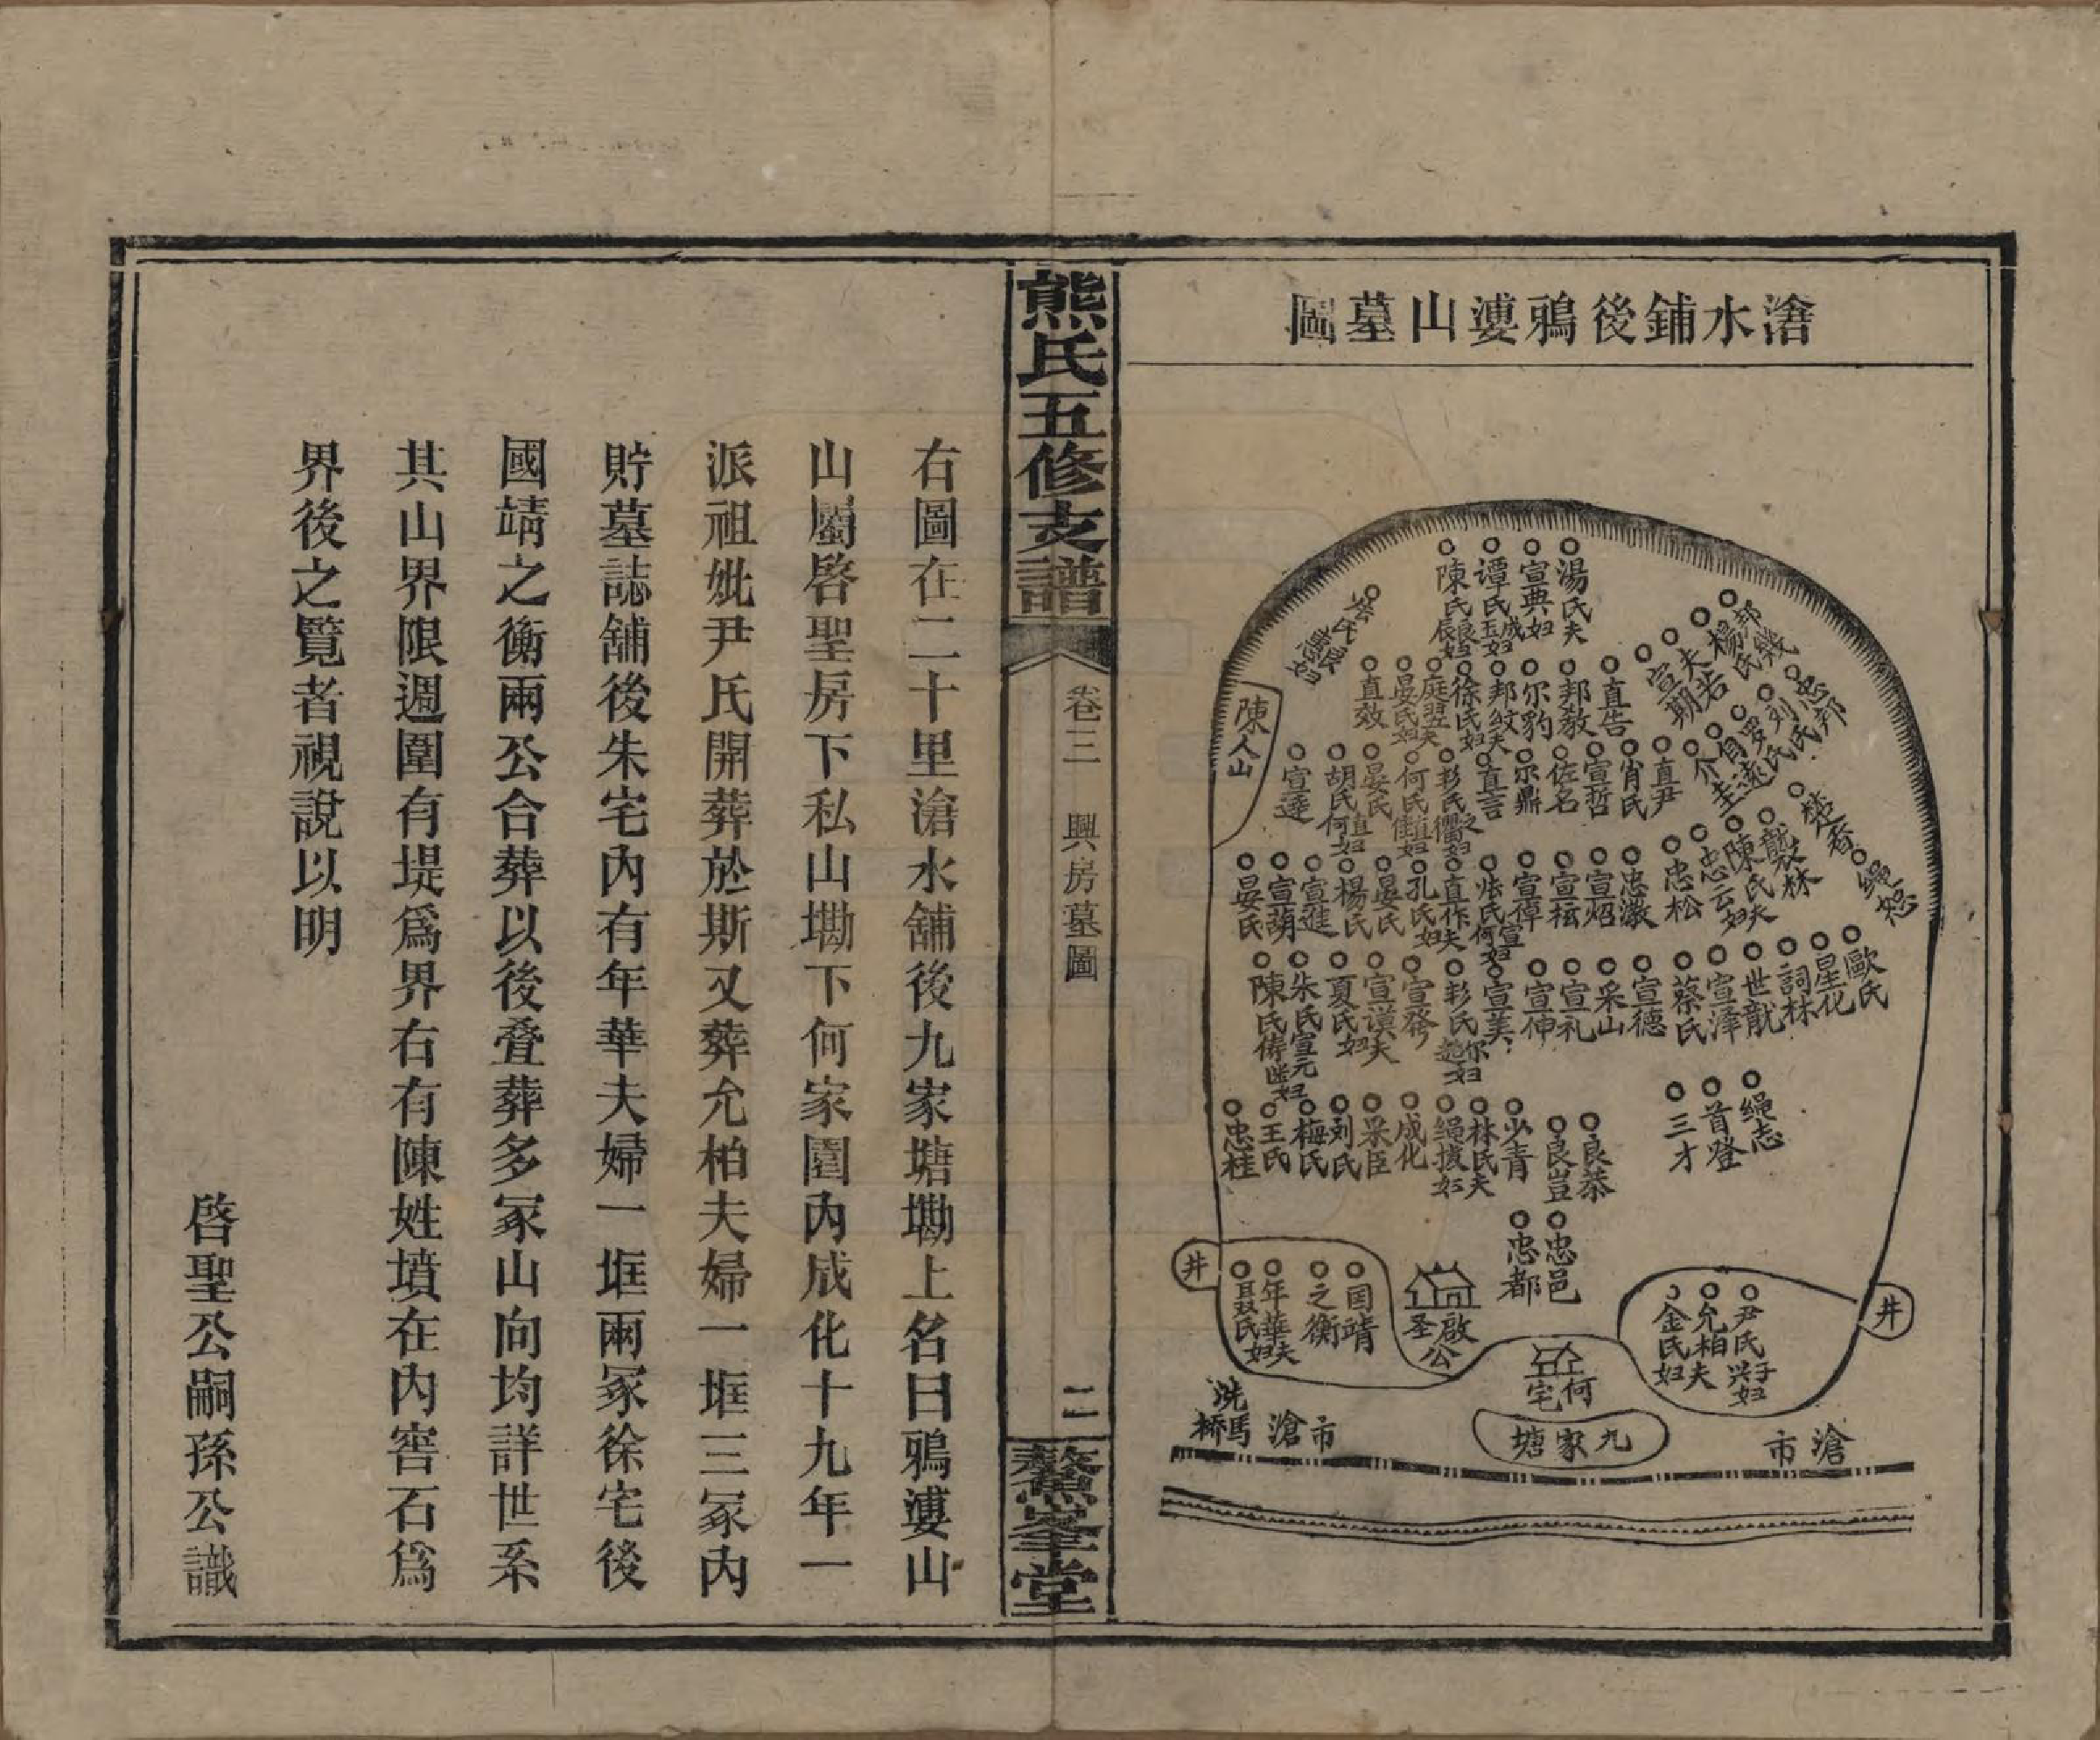 滄水鋪後鴉漊山墓圖
湯氏夫
宣典妇
譚氏玉成妇
陳氏良辰妇
邦幾
楊氏
夫若
宣期
直告
邦教
尔豹
邦紋夫
徐氏妇
庭翌夫
晏氏妇
直效
陳人山
忠邦
刘氏
罗氏
直尹
肖氏
宣哲
佐名
尔鼎
直言
彭氏之儒妇
何氏直佳妇
晏氏
胡氏直何妇
宣逵
楚春
绳想
龔林
陳氏夫
忠云妇
忠松
忠澂
宣炤
宣枟
宣倬
張氏宣何妇
直作夫
孔氏妇
晏氏
楊氏
宣進
宣葫
晏氏
歐氏
星化
詞林
世龍
宣泽
蔡氏
宣德
采山
宣礼
宣伸
宣美
彭氏尔遊妇
宣發
宣谟夫
夏氏妇
朱氏宣元妇
陳氏
绳志
首登
三才
良恭
良豈
少青
林氏夫
绳拔妇
成化
采臣
刘氏
梅氏
王氏
忠桂
忠邑
忠都
井
尹氏兴子妇
允柏夫
金氏妇
啟圣公
国靖
之衡
年華夫
聂氏妇
井
何宅
九家塘
滄市
市滄
洗馬桥
熊氏五修支譜
卷三 興房墓圖
二
鰲峯堂
右圖在二十里滄水舖後九家塘墈上名曰鴉漊山
山屬啓聖房下私山墈下何家園內成化十九年一
派祖妣尹氏開葬於斯又葬允柏夫婦一堆三冢內
貯墓誌舖後朱宅內有年華夫婦一堆兩冢徐宅後
國靖之衡兩公合葬以後叠葬多冢山向均詳世系
其山界限週圍有堤爲界右有陳姓墳在內窖石爲
界後之覽者視說以明
啓聖公嗣孫公識